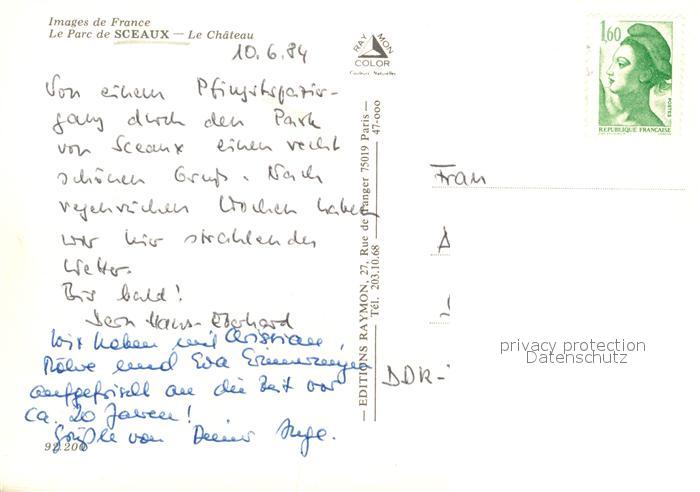 Images de France
Le Parc de SCEAUX — Le Château
10.6.84
RAY MON
COLOR
Couleurs Naturelles
1,60
POSTES
REPUBLIQUE FRANÇAISE
Von einem Pfingstspazier-
gang durch den Park
von Sceaux einen recht
schönen Gruß. Nach
regenreichen Wochen haben
wir hier strahlendes
Wetter.
Bis bald!
Dein Hans-Eberhard
Wir haben mit Christian,
und Eva Erinnerungen
aufgefrischt an die Zeit vor
ca. 20 Jahren!
Grüße von Deiner Inge.
92.200
— EDITIONS RAYMON, 27, Rue de Tanger 75019 Paris —
Tél. 203.10.68 47-000
Frau
DDR-
privacy protection
Datenschutz